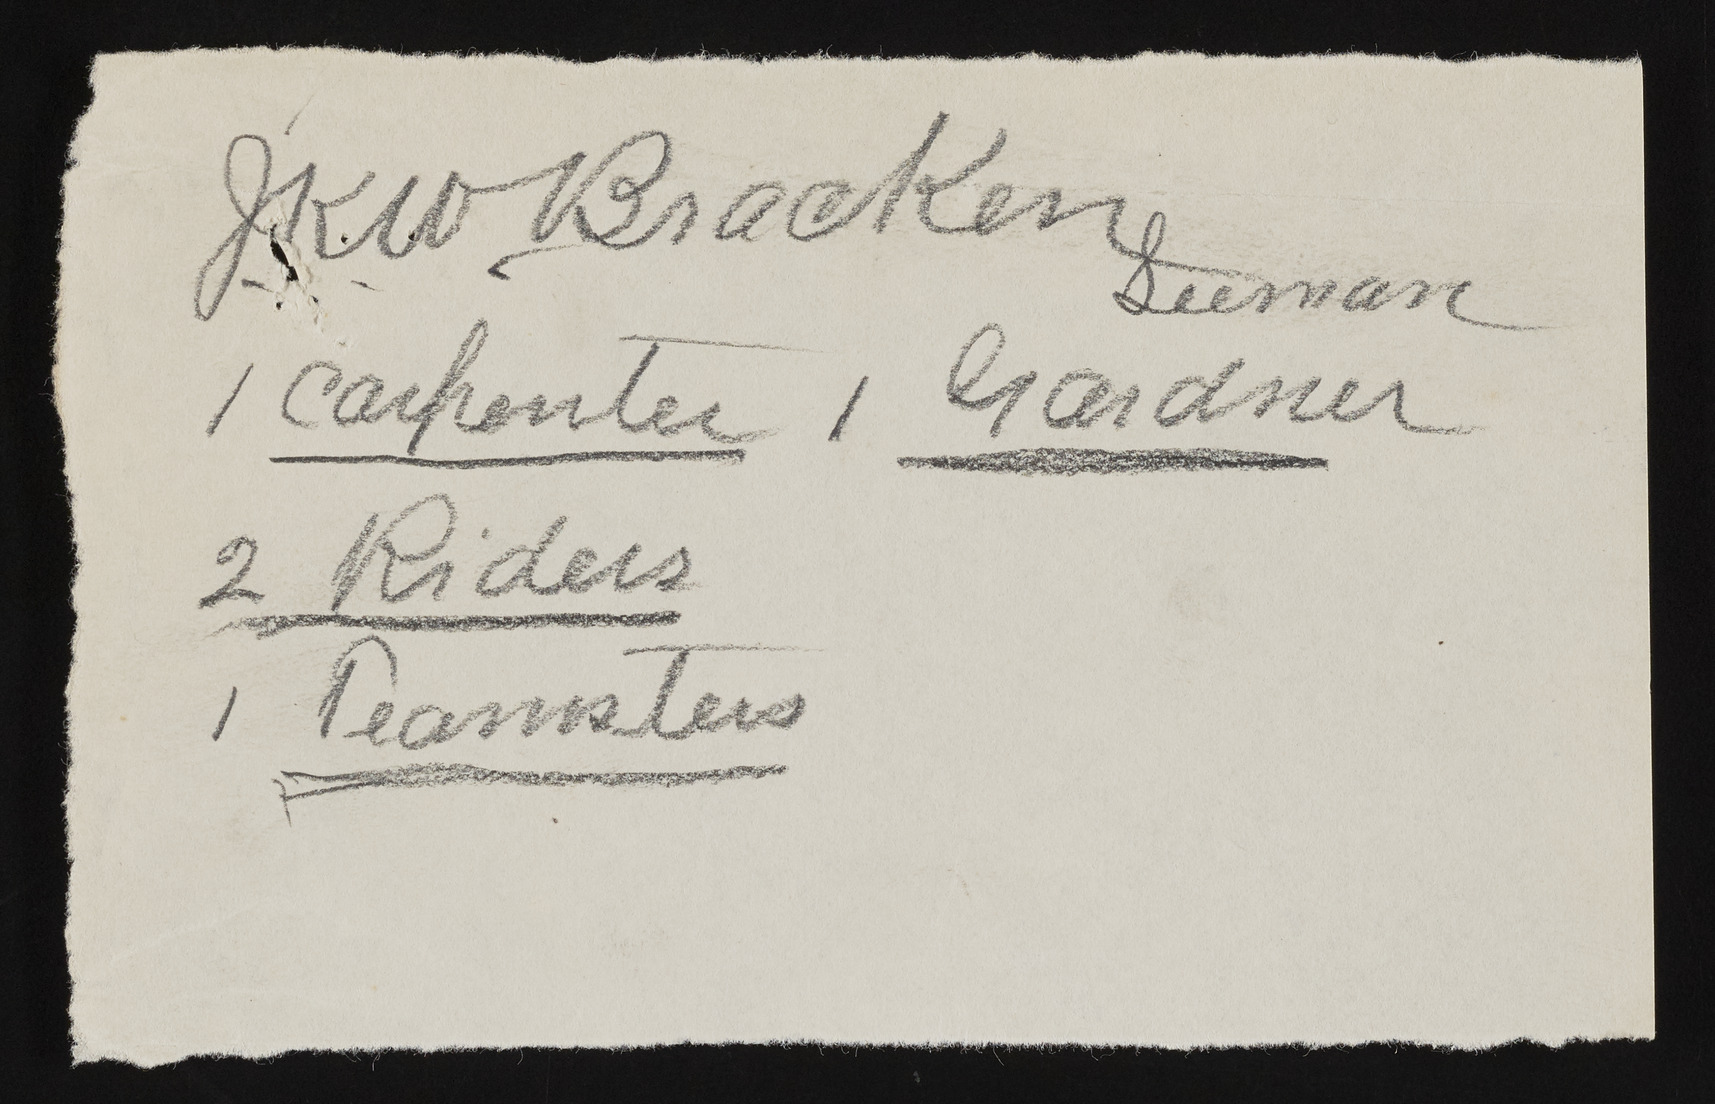 JKW Bracken
1 Carpenter 1 Gardner
2 Riders
1 Teamsters